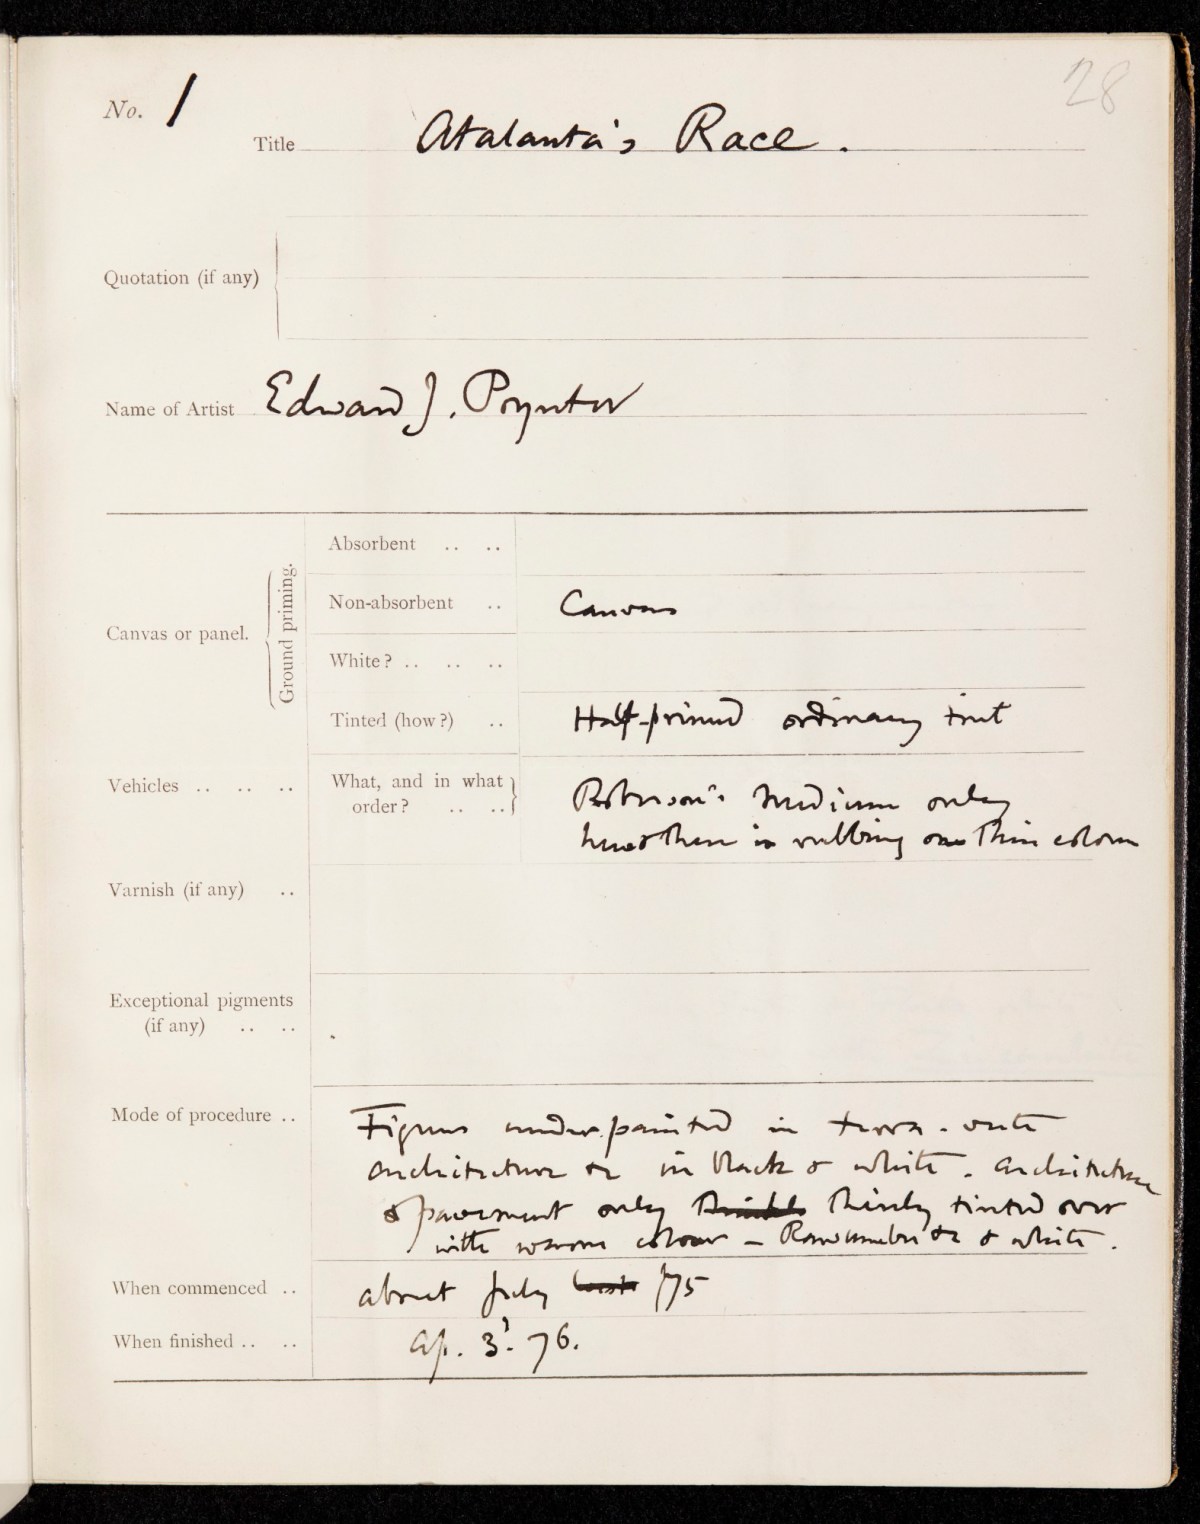 28
No. 1
Title Atalanta's Race.
Quotation (if any)
Name of Artist Edward J. Poynter
Canvas or panel.
Ground priming.
Absorbent .. ..
Non-absorbent .. Canvas
White? .. .. ..
Tinted (how?) .. Half-primed ordinary tint
Vehicles .. .. .. What, and in what order? .. .. Robinson's medium only
here & there in rubbing on thin colour
Varnish (if any) ..
Exceptional pigments
(if any) .. ..
Mode of procedure .. Figures under-painted in terra-verte
architecture &c in black & white. architecture
& pavement only thinly tinted over
with warm colour — Raw umber &c & white.
When commenced .. about July /75
When finished .. .. Ap. 3. 76.